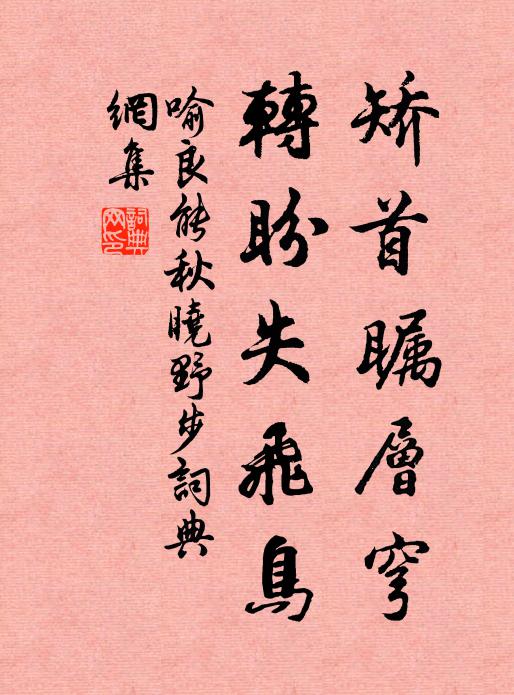 矫首瞩層穹
轉盼失飛鳥
喻良能秋曉野步詞典
網集
詞典網印